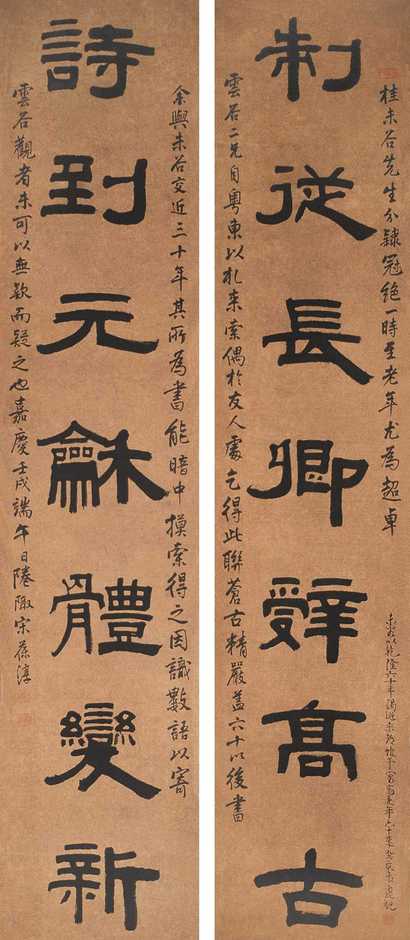 制從長卿辭高古
桂未谷先生分隸冠絕一時至老年尤為超卓
雲谷二兄自粵東以札来索偶於友人處乞得此聯蒼古精嚴蓋六十以後書
詩到元龢體變新
余與未谷交近三十年其所為書能暗中摸索得之因識數語以寄
雲谷觀者未可以無款而疑之也嘉慶壬戌端午日隆陬宋葆淳